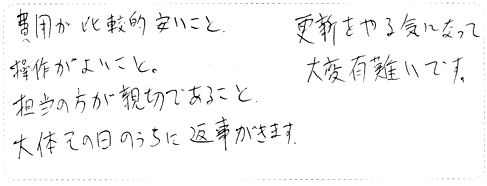 費用が比較的安いこと.
操作がよいこと。
担当の方が親切であること.
大体その日のうちに返事がきます.
更新をやる気になって
大変有難いです。